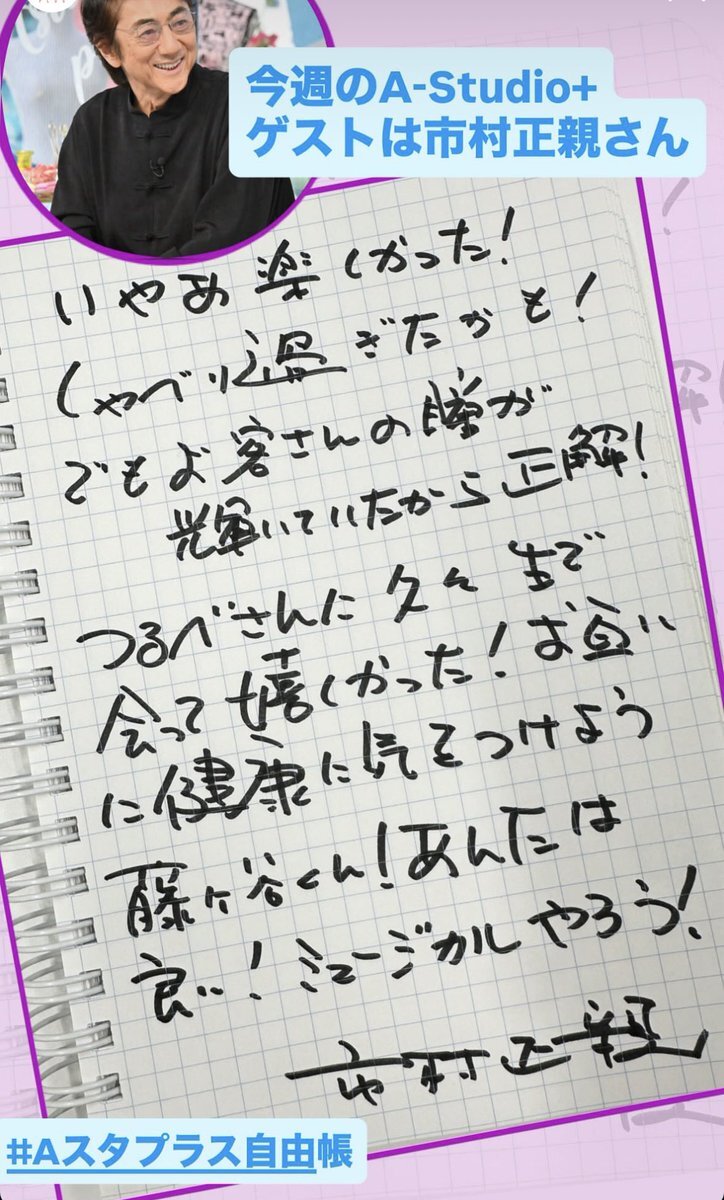 今週のA-Studio+
ゲストは市村正親さん
いやぁ楽しかった!
しゃべり過ぎたかも!
でもお客さんの瞳が
輝いていたから正解!
つるべさんに久々生で
会って嬉しかった!お互い
に健康に気をつけよう
藤ヶ谷くん!あんたは
良い!ミュージカルやろう!
市村正親
#Aスタプラス自由帳